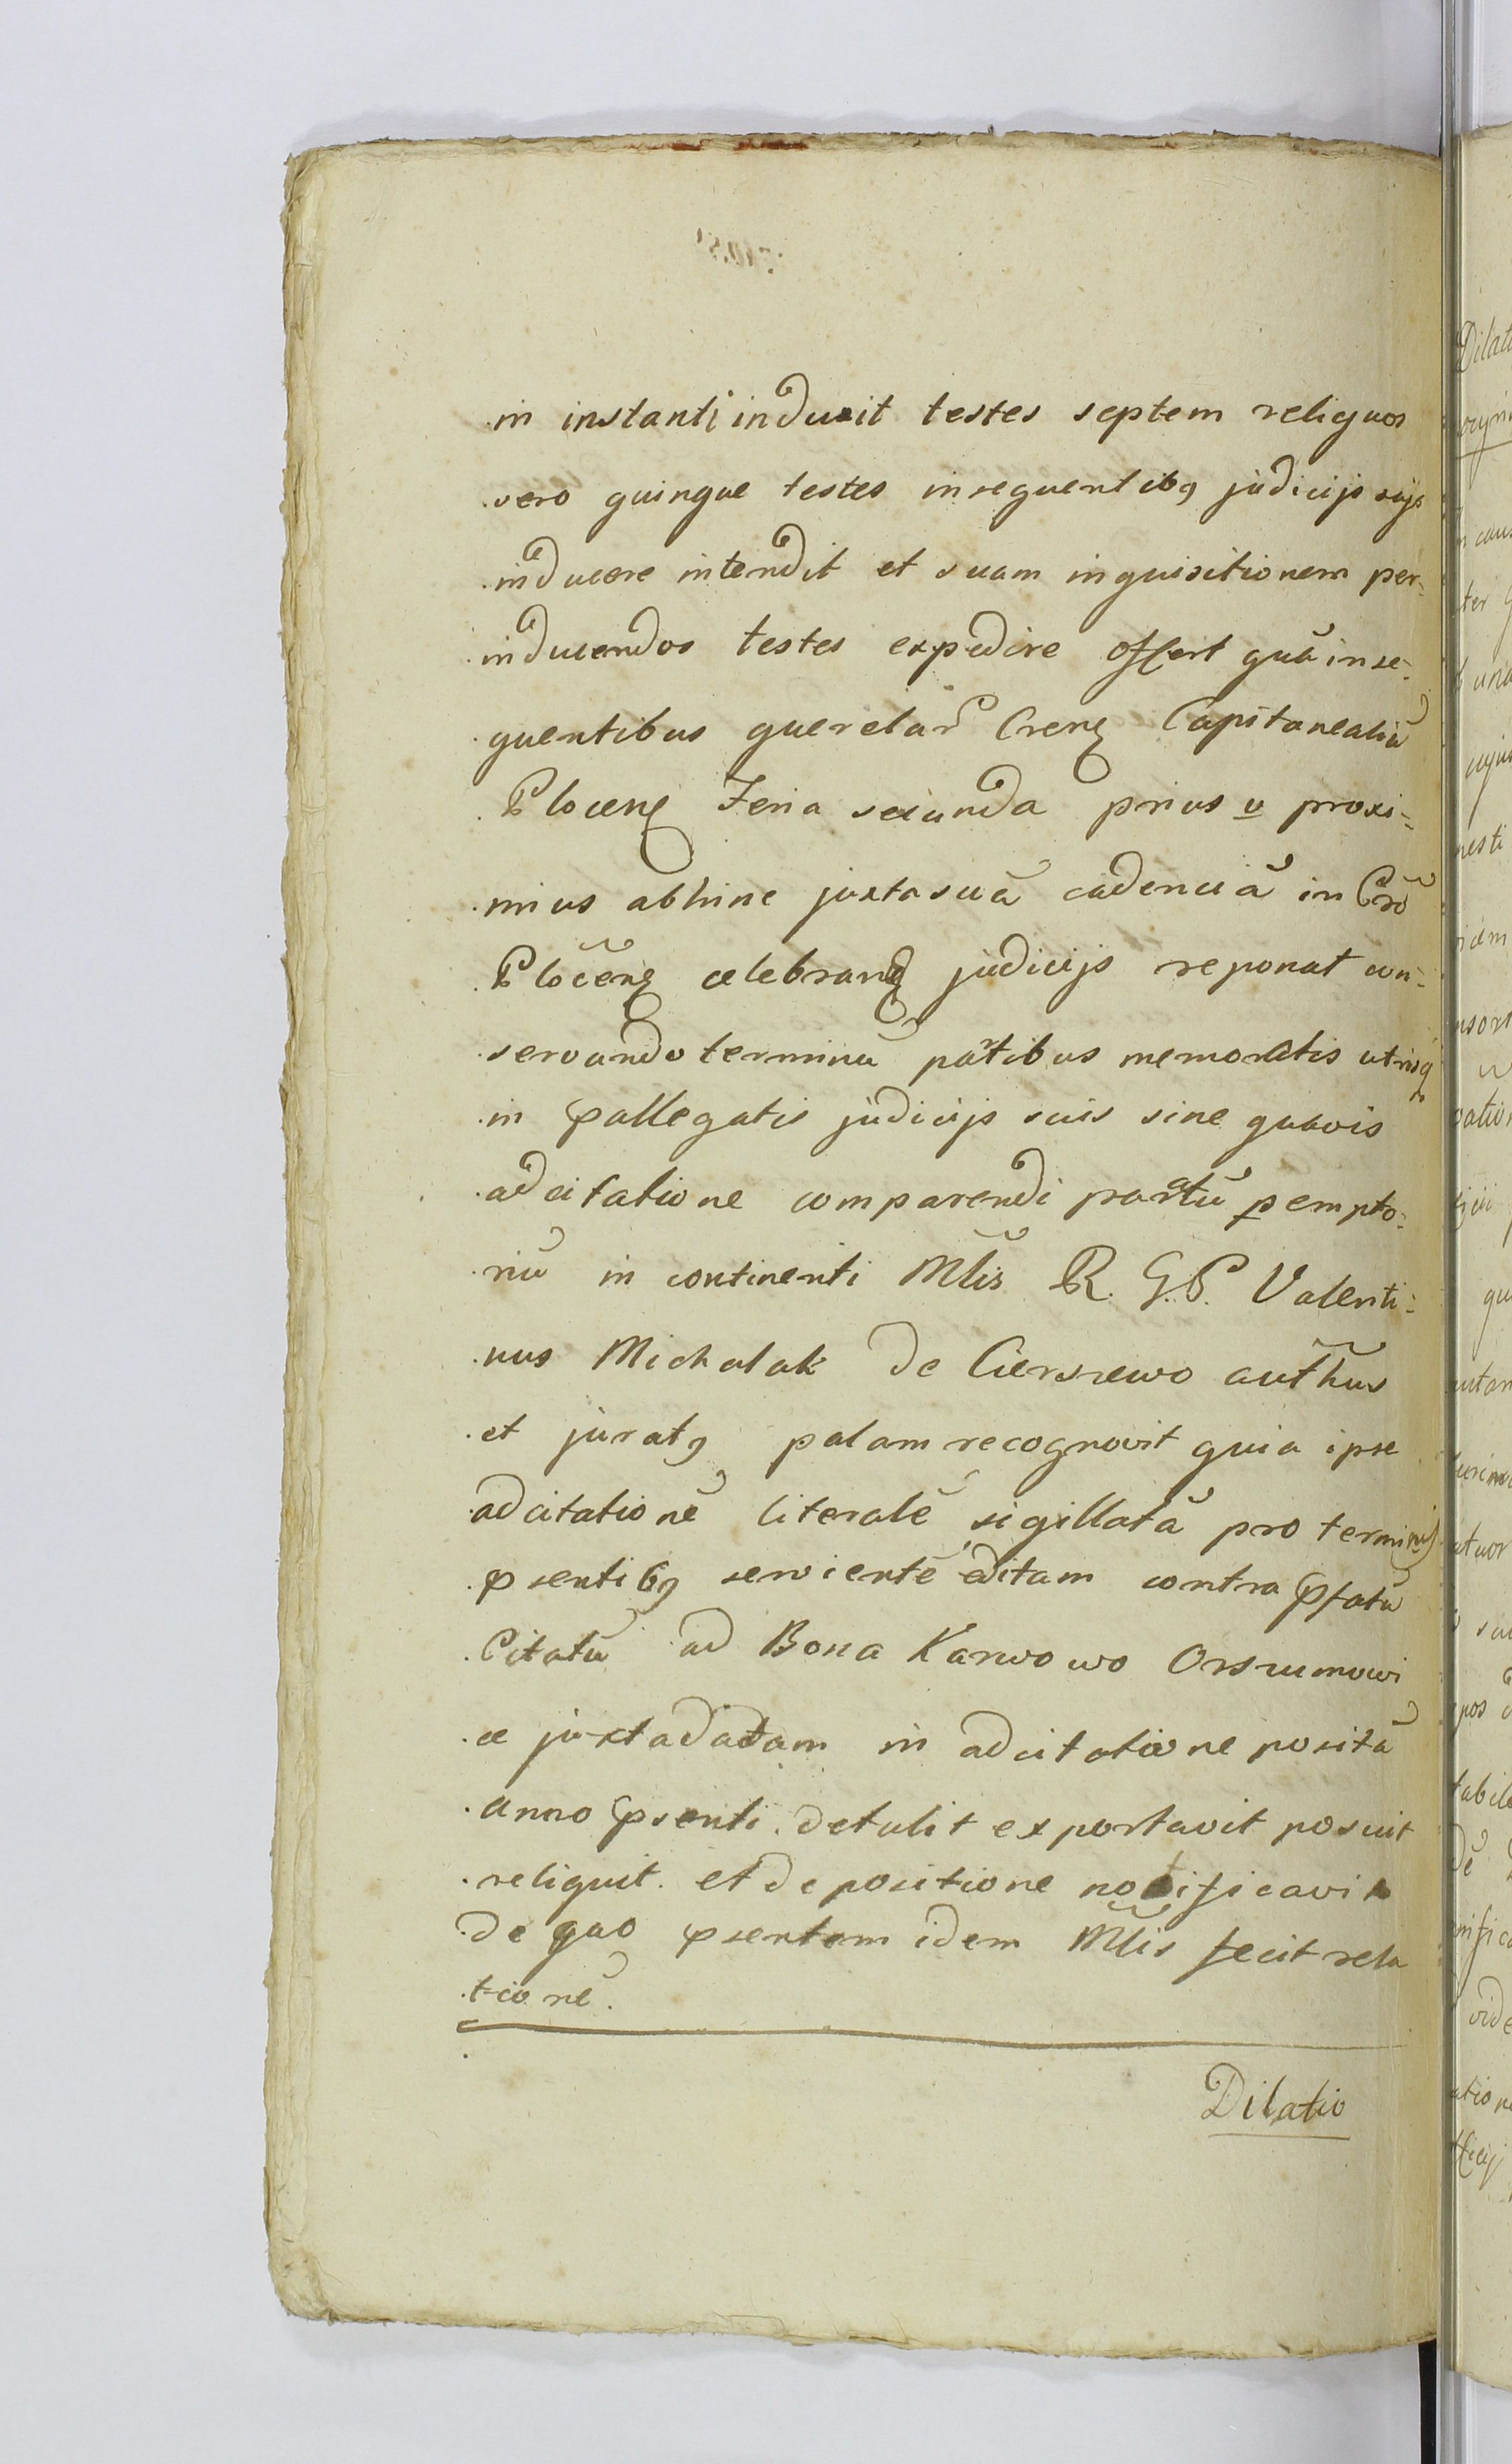 in instanti induxit testes septem reliquos
vero quinque testes insequentibꝫ judicijs suis
inducere intendit et suam inquisitionem per-
inducendos testes expedire offert quā inse-
quentibus querelar Crenꝫ Capitanealiū
Plocenꝫ Feria secunda prius v proxi-
mius abhinc juxta suā cadenciā in Crō
Plocēnꝫ celebranꝫ judicijs reponat con-
servando terminū pārtibus memoratis utrisqꝫ
in pallegatis judicijs suis sine quavis
adcitatione comparendi partū pempto-
riū in continenti Mlis R. G. P. Valenti-
nus Michalak de Cierszewo authūs
et juratꝫ palam recognovit quia ipse
adcitationē literalē sigillatā pro terminis
psentibꝫ servientē editam contra pfatū
Citatū ad Bona Karwowo Orszumowi
ce juxta datam in adcitatione positā
anno psenti detulit exportavit posuit
reliquit. et depositione notificavit
de quo psentem idem Mlis fecit rela
tionē.
Dilatio